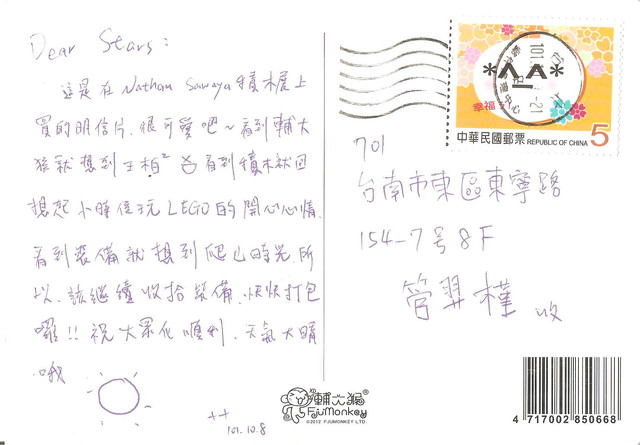 Dear Stars:
這是在 Nathan Sawaya 積木展上
買的明信片.很可愛吧~看到輔大
猴就想到王柏² 看到積木就回
想起小時候玩LEGO的開心心情.
看到裝備就想到爬山時光.所
以.該繼續收拾裝備.快快打包
囉!!祝大眾化順利.天氣大晴
哦
101.10.8
101
21
*^_^*
幸福
中華民國郵票 REPUBLIC OF CHINA 5
701
台南市東區東寧路
154-7号8F
收
輔大猴
FjuMonkey
©2012 FJUMONKEY LTD.
4 717002 850668